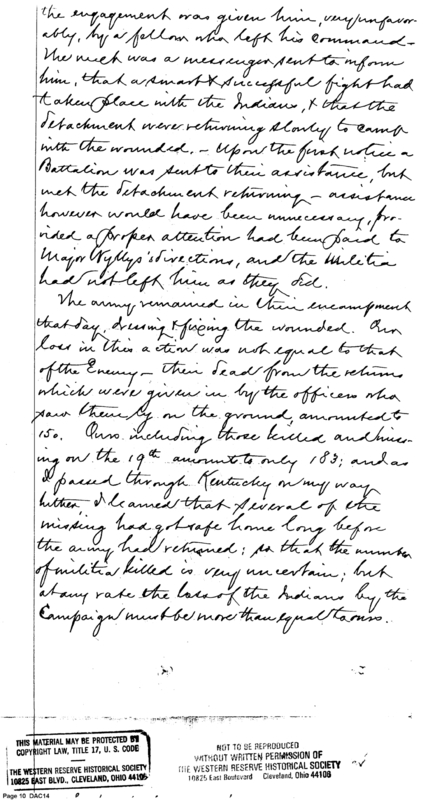 the engagement was given him, very unfavor
ably, by a fellow who left his command –
The next was a messenger sent to inform
him, that a smart & successful fight had
taken place with the Indians, & that the
detachment were returning slowly to camp
with the wounded. – Upon the first notice a
Battalion was sent to their assistance, but
met the detachment returning – assistance
however would have been unnecessary, pro-
vided a proper attention had been paid to
Major Wyllys's directions, and the Militia
had not left him as they did.
The army remained in their encampment
that day, dressing & fixing the wounded. Our
loss in this action was not equal to that
of the Enemy – their dead from the returns
which were given in by the officers who
saw them ly on the ground, amounted to
150. Ours including those killed and miss-
ing on the 19th amounts to only 183; and as
I passed through Kentucky on my way
hither, I learned that several of the
missing had got safe home long before
the army had returned; so that the number
of militia killed is very uncertain; but
at any rate the loss of the Indians by the
Campaign must be more than equal to ours.
THIS MATERIAL MAY BE PROTECTED BY
COPYRIGHT LAW, TITLE 17, U. S. CODE
THE WESTERN RESERVE HISTORICAL SOCIETY
10825 EAST BLVD., CLEVELAND, OHIO 44106
NOT TO BE REPRODUCED
WITHOUT WRITTEN PERMISSION OF
THE WESTERN RESERVE HISTORICAL SOCIETY
10825 East Boulevard Cleveland, Ohio 44106
Page 10 DAC14